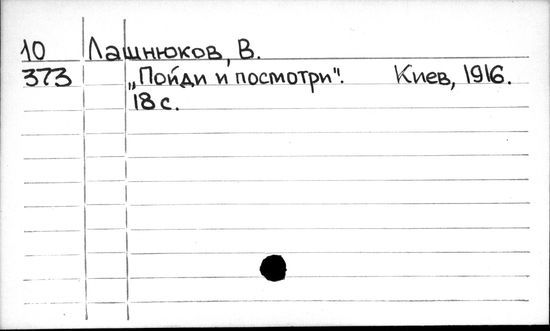 10 Лашнюков, В.
373 „Пойди и посмотри". Киев, 1916.
18 с.